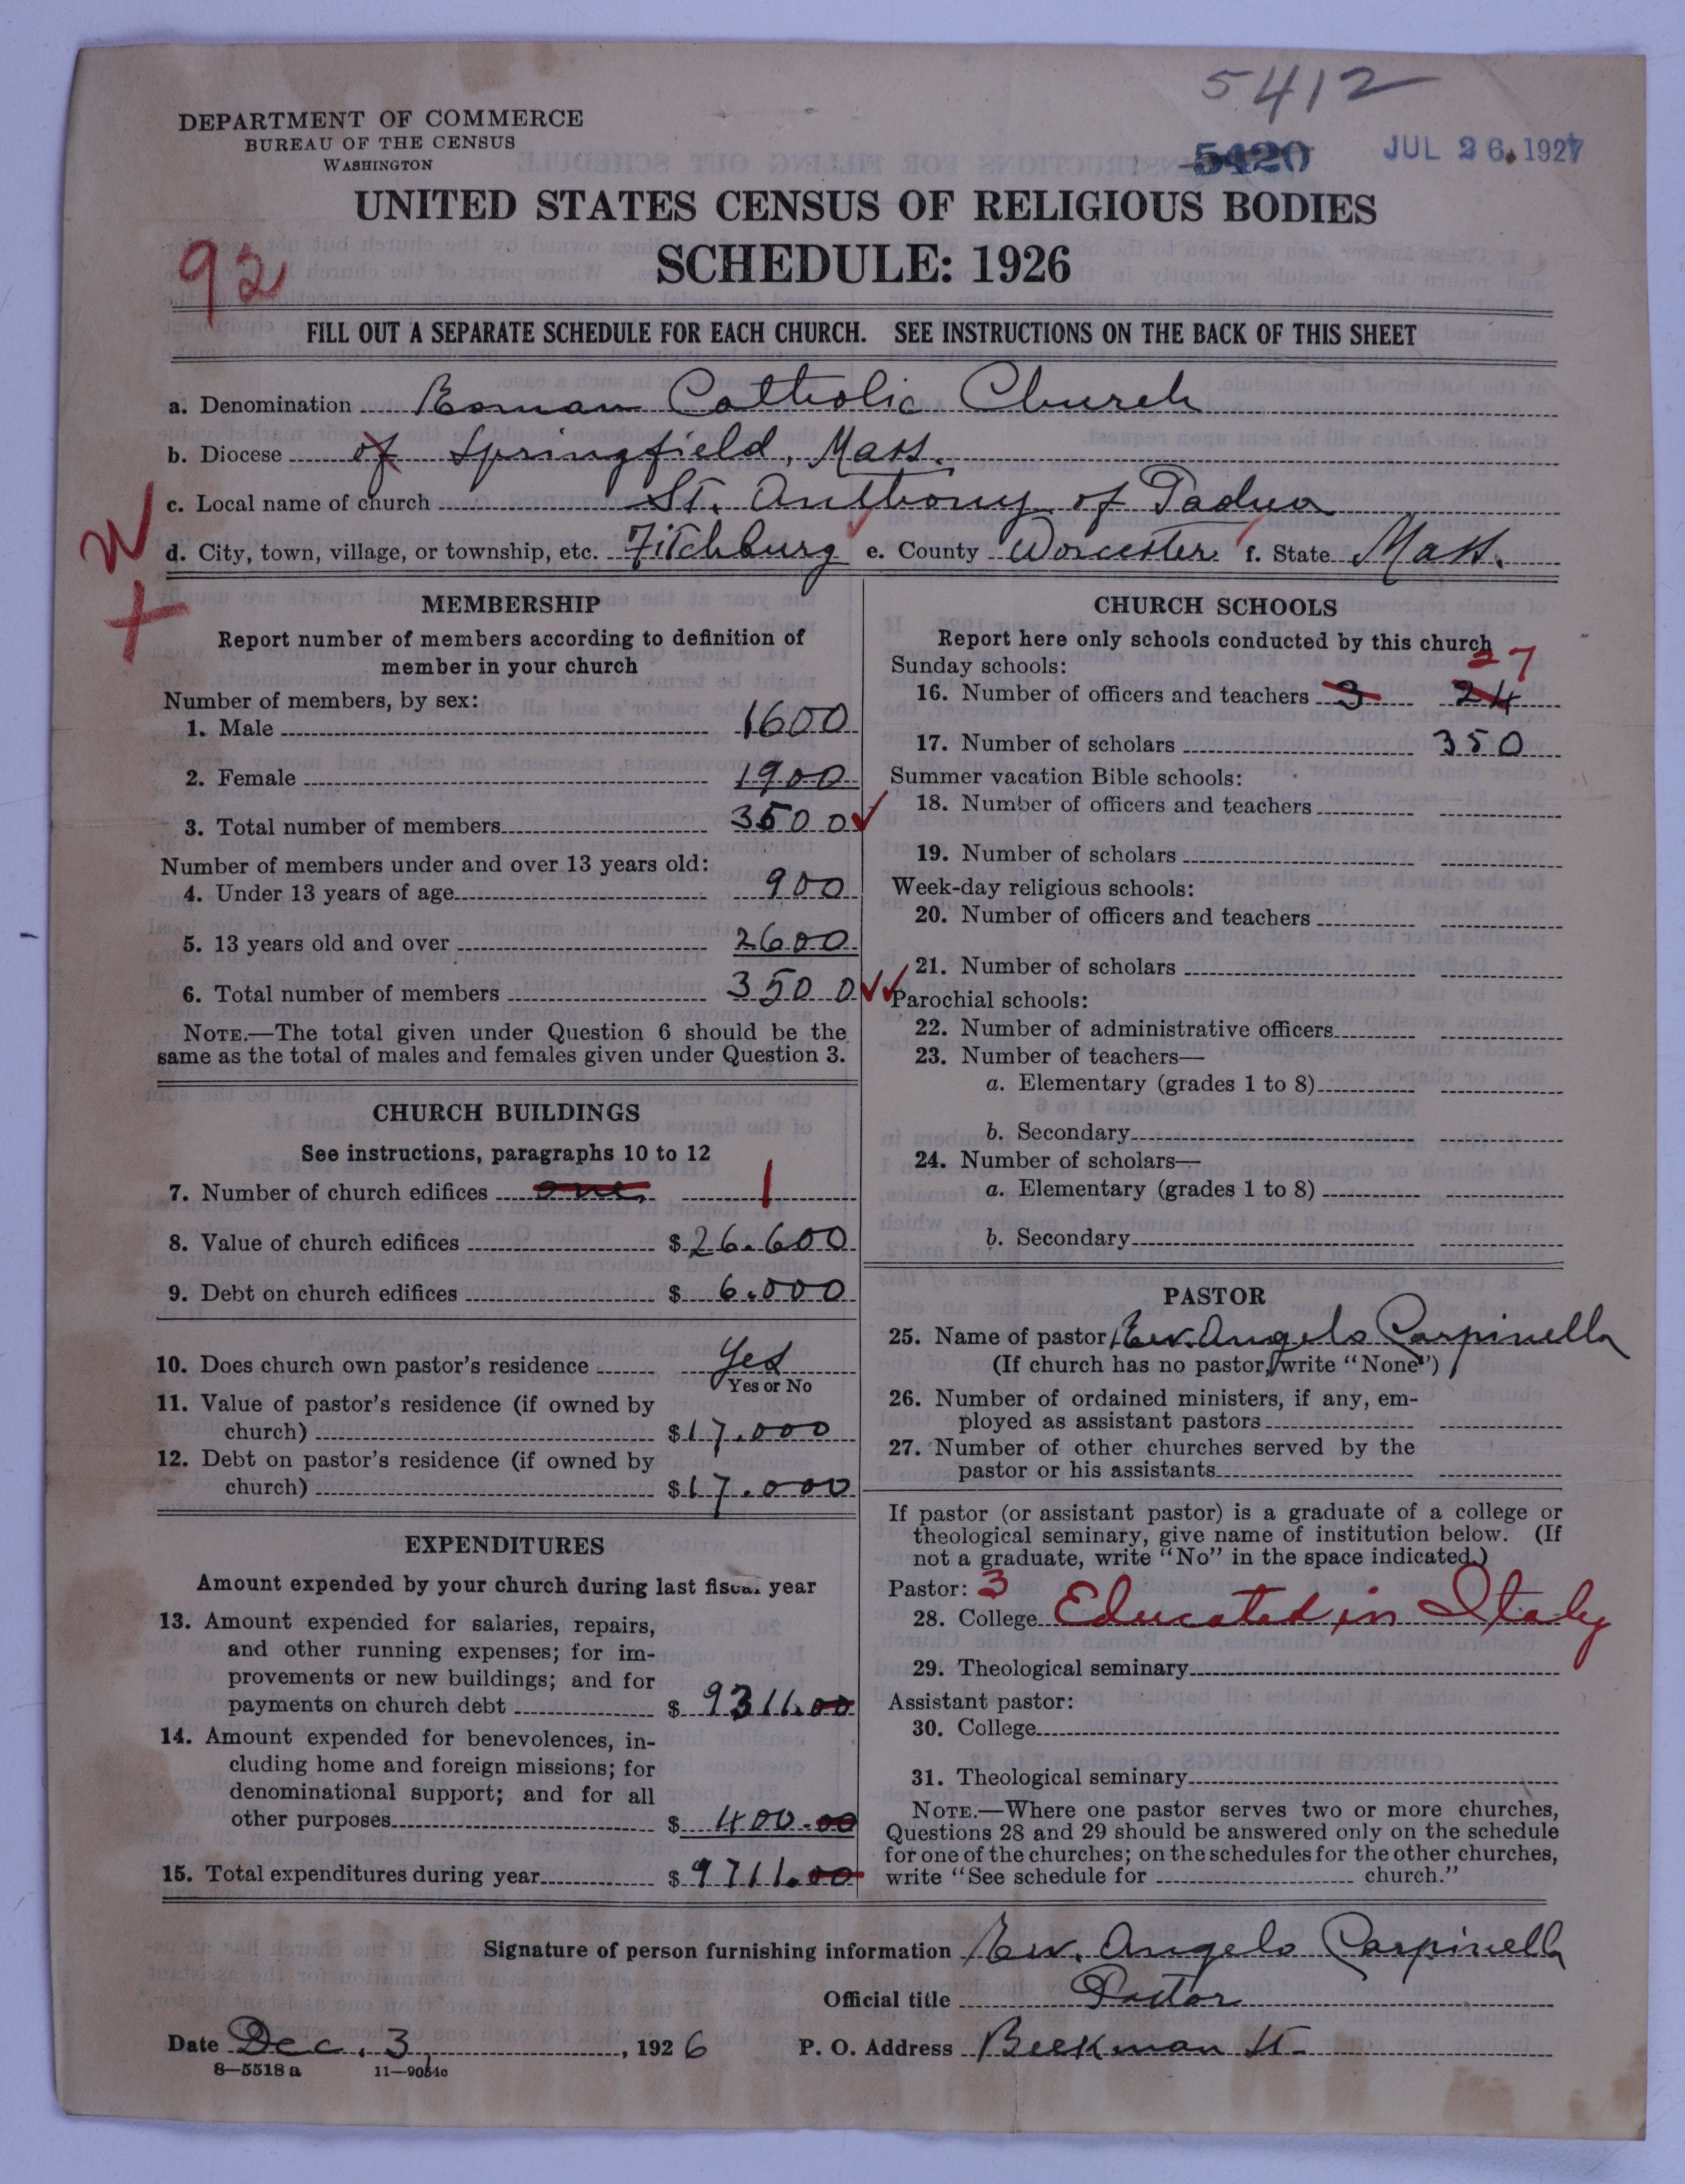 5412
DEPARTMENT OF COMMERCE
BUREAU OF THE CENSUS
WASHINGTON
5420 JUL 26. 1927
UNITED STATES CENSUS OF RELIGIOUS BODIES
SCHEDULE: 1926
92
FILL OUT A SEPARATE SCHEDULE FOR EACH CHURCH. SEE INSTRUCTIONS ON THE BACK OF THIS SHEET
a. Denomination Roman Catholic Church
b. Diocese of Springfield, Mass.
c. Local name of church St. Anthony of Padua
d. City, town, village, or township, etc. Fitchburg e. County Worcester f. State Mass.
MEMBERSHIP
Report number of members according to definition of
member in your church
Number of members, by sex:
1. Male 1600
2. Female 1900
3. Total number of members 3500
Number of members under and over 13 years old:
4. Under 13 years of age 900
5. 13 years old and over 2600
6. Total number of members 3500
NOTE.—The total given under Question 6 should be the
same as the total of males and females given under Question 3.
CHURCH BUILDINGS
See instructions, paragraphs 10 to 12
7. Number of church edifices one 1
8. Value of church edifices $26.600
9. Debt on church edifices $6.000
10. Does church own pastor's residence Yes
Yes or No
11. Value of pastor's residence (if owned by
church) $17.000
12. Debt on pastor's residence (if owned by
church) $17.000
EXPENDITURES
Amount expended by your church during last fiscal year
13. Amount expended for salaries, repairs,
and other running expenses; for im-
provements or new buildings; and for
payments on church debt $9311.00
14. Amount expended for benevolences, in-
cluding home and foreign missions; for
denominational support; and for all
other purposes $400.00
15. Total expenditures during year $9711.00
CHURCH SCHOOLS
Report here only schools conducted by this church
27
Sunday schools:
16. Number of officers and teachers 3 24
17. Number of scholars 350
Summer vacation Bible schools:
18. Number of officers and teachers
19. Number of scholars
Week-day religious schools:
20. Number of officers and teachers
21. Number of scholars
Parochial schools:
22. Number of administrative officers
23. Number of teachers—
a. Elementary (grades 1 to 8)
b. Secondary
24. Number of scholars—
a. Elementary (grades 1 to 8)
b. Secondary
PASTOR
25. Name of pastor Rev. Angelo Carpinella
(If church has no pastor, write "None")
26. Number of ordained ministers, if any, em-
ployed as assistant pastors
27. Number of other churches served by the
pastor or his assistants
If pastor (or assistant pastor) is a graduate of a college or
theological seminary, give name of institution below. (If
not a graduate, write "No" in the space indicated.)
Pastor: 3
28. College Educated in Italy
29. Theological seminary
Assistant pastor:
30. College
31. Theological seminary
NOTE.—Where one pastor serves two or more churches,
Questions 28 and 29 should be answered only on the schedule
for one of the churches; on the schedules for the other churches,
write "See schedule for church."
Signature of person furnishing information Rev. Angelo Carpinella
Official title Pastor
Date Dec. 3, 1926 P. O. Address Beekman St.
8—5518a 11—9051c